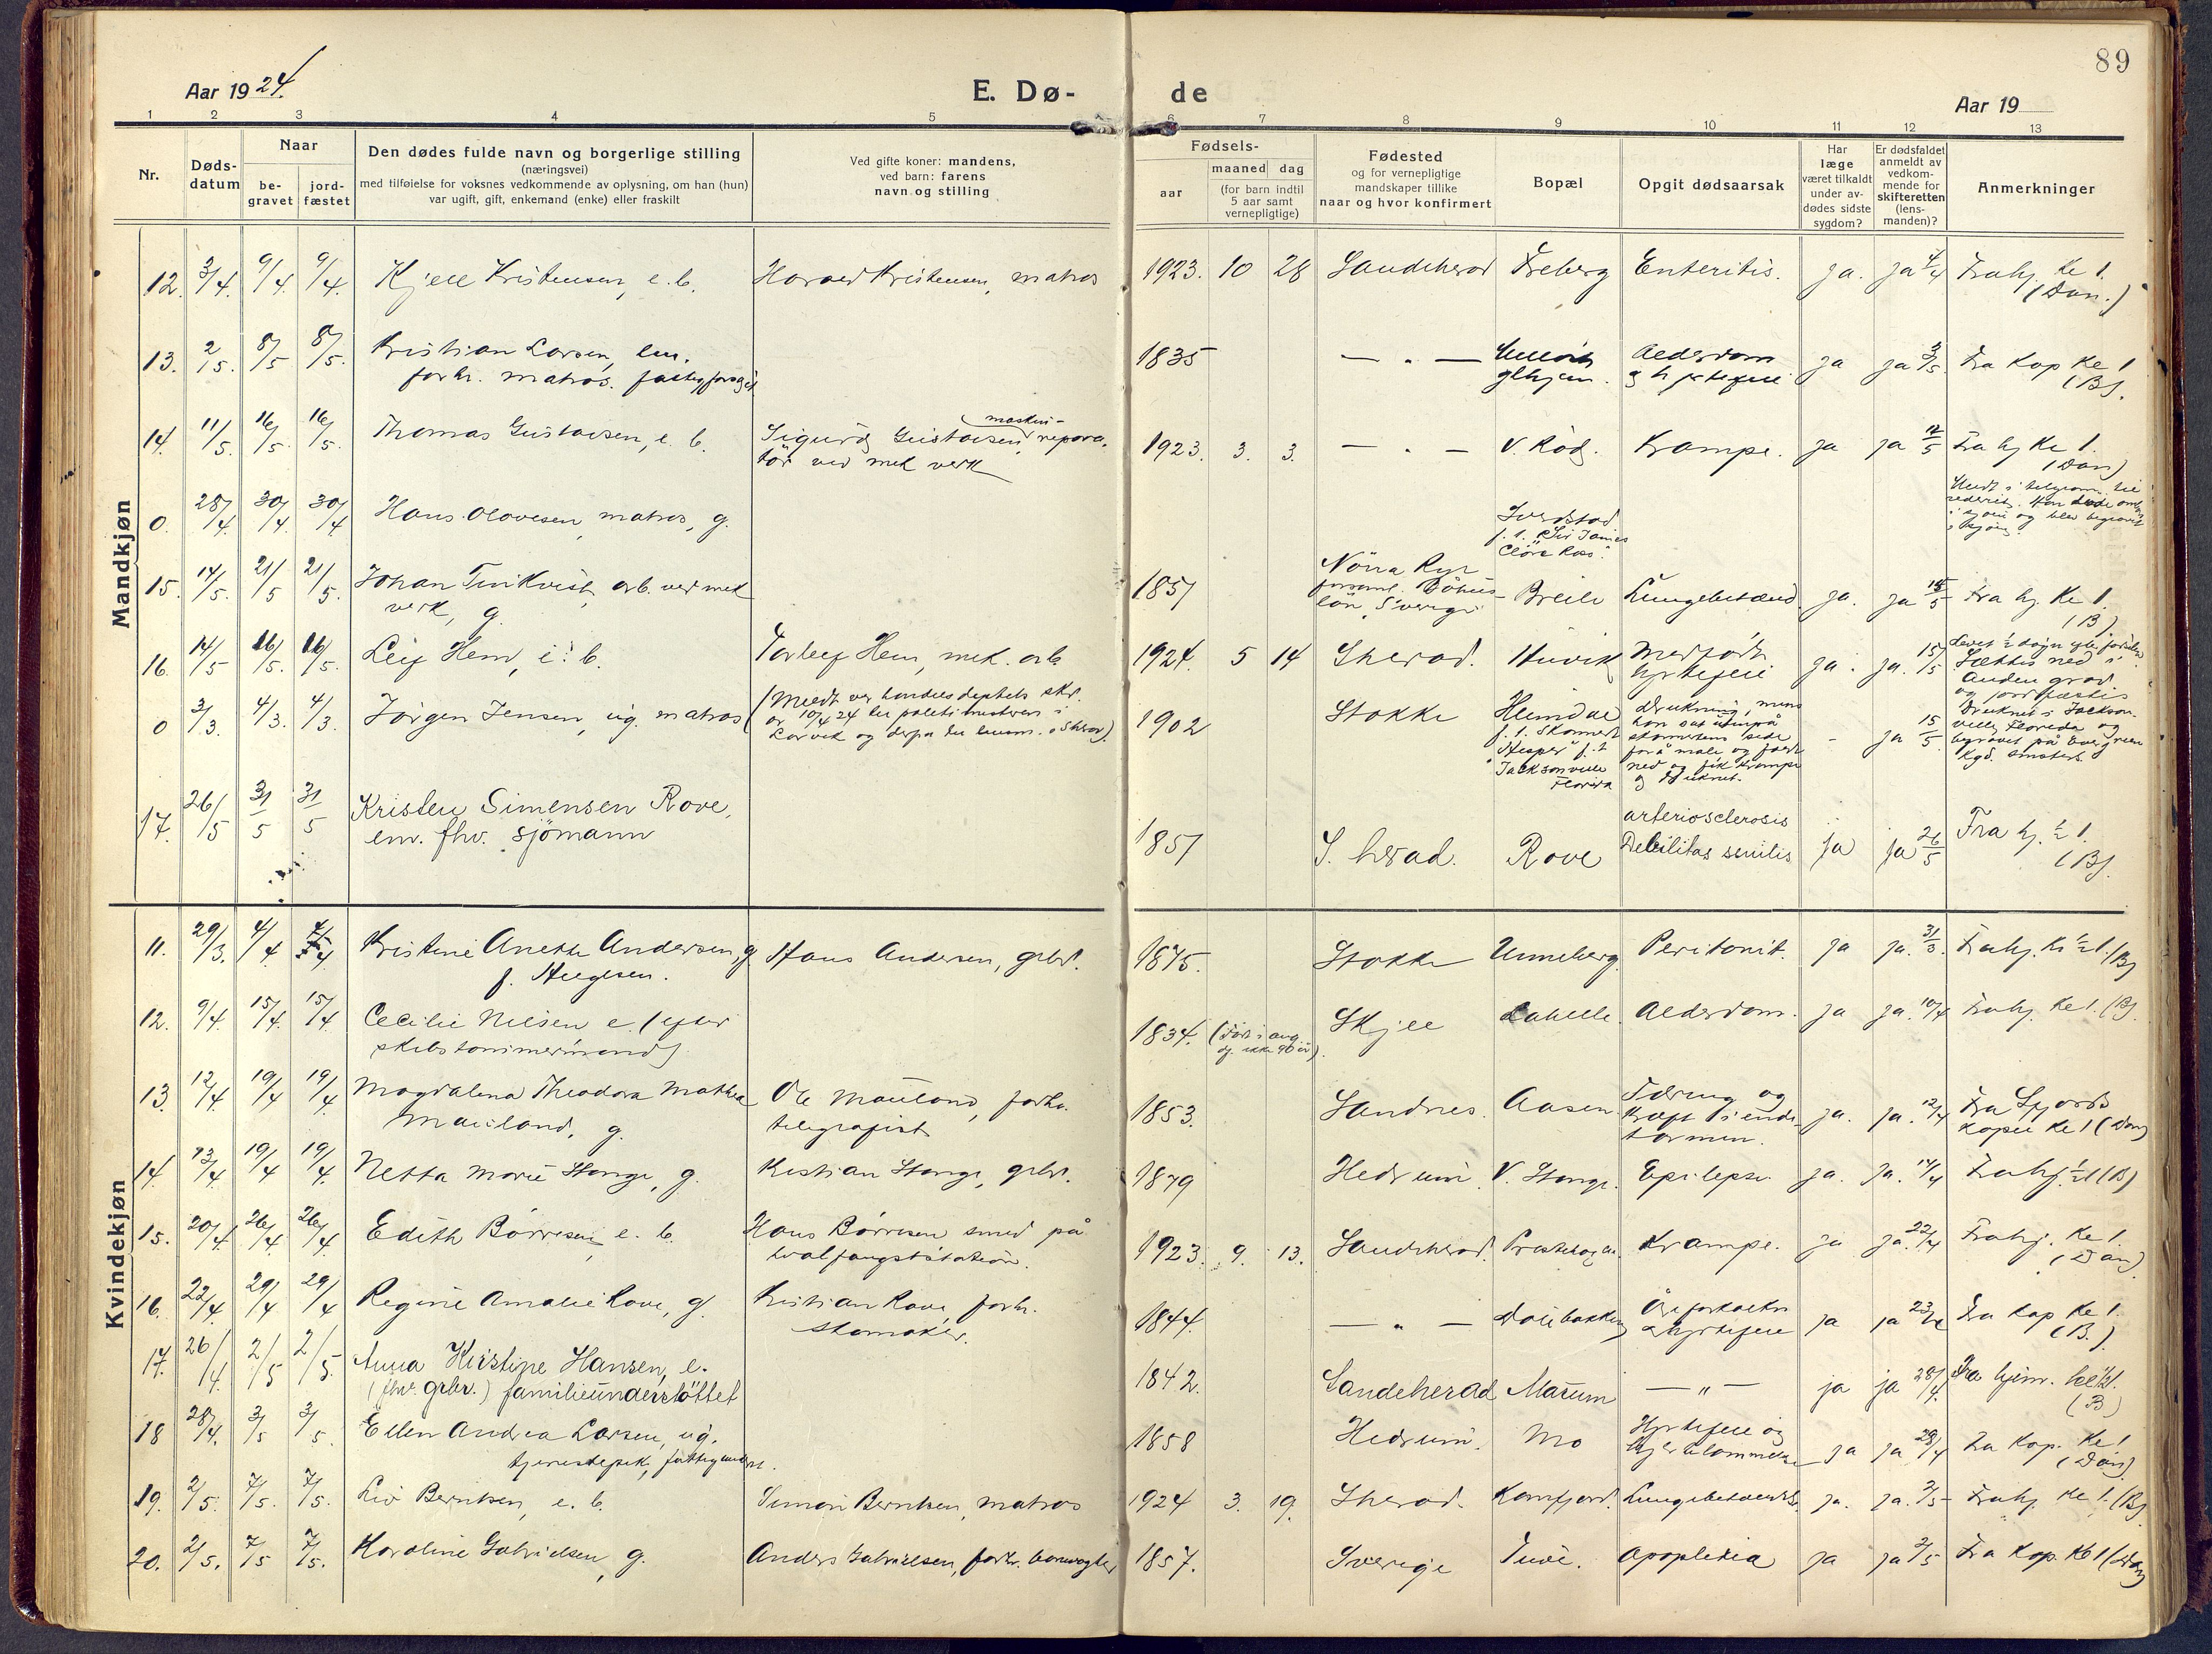 89
Aar 1924.
E. Dø-
de
Aar 19
1 2 3 4 5 6 7 8 9 10 11 12 13
Nr.
Døds-
datum
Naar
be-
gravet
jord-
fæstet
Den dødes fulde navn og borgerlige stilling
(næringsvei)
med tilføielse for voksnes vedkommende av oplysning, om han (hun)
var ugift, gift, enkemand (enke) eller fraskilt
Ved gifte koner: mandens,
ved barn: farens
navn og stilling
Fødsels-
aar
maaned dag
(for barn indtil
5 aar samt
vernepligtige)
Fødested
og for vernepligtige
mandskaper tillike
naar og hvor konfirmert
Bopæl
Opgit dødsaarsak
Har
læge
været tilkaldt
under av-
dødes sidste
sygdom?
Er dødsfaldet
anmeldt av
vedkom-
mende for
skifteretten
(lens-
manden)?
Anmerkninger
Mandkjøn
12. 3/4. 9/4. 9/4. Kjell Kristensen, e. b. Harald Kristensen, matros 1923. 10 28 Sandeherad Freberg Enteritis. ja. ja 4/4 Fra hj. Kl 1.
(Dan.)
13. 2/5. 8/5 8/5. Kristian Larsen, em. 1835 — " — Alderdom ja ja 3/5. Fra Kap Kl 1
forh. matros. og hjertefeil (B).
14. 11/5. 16/5. 16/5. Thomas Gustavsen, e. b. Sigurd Gustavsen, maskin-repara-
tör ved mek verk 1923. 3. 3. — " — V. Röd. Krampe. ja ja 12/5 Fra hj Kl 1.
(Dan)
0. 28/4. 30/4 30/4 Hans Olavesen, matros, g.
f. t. "Sir James
Clark Ross".
15. 14/5. 21/5 21/5. Johan Turkvist, arb. ved mek
verk, g. 1857 Nörra Ryr
Bohus-
län, Sverige Breili Lungebetænd. ja. ja 15/5 Fra hj. Kl 1.
(B)
16. 14/5 16/5. 16/5. Leif Hem, e. b. Torleif Hem, mek. arb 1924. 5 14 Sherad. Huvik Medfødt
hjertefeil ja. ja. 15/5 Levet ½ døgn
sættes ned i
Anden grav.
og jordfæstes
0 3/3. 4/3. 4/3. Jørgen Jensen, ug. matros (Meldt av handelsdeptets skr.
av 10/4 24 til politimesteren i
Larvik og derpa til lensm. i Sherad). 1902 Stokke Heimdal
f. t. Skonnert
"Hesper" f. t.
Jacksonville
Florida drukning, mens
han sat utenpå
skonnertens side
for å male og faldt
ned og fik krampe
og druknet. - ja 15/5 Druknet i Jackson-
ville, Florida og
begravet på Evergreen
kgd. smsteds.
17. 26/5 31/5 31/5 Kristen Simensen Rove,
em. fhv. sjömann 1857 S. herad. Rove arteriosclerosis
Debilitas senilis ja ja 26/5 Fra hj. ½ 1.
(B).
Kvindekjøn
11. 29/3. 4/4. 4/4 Kristine Anette Andersen, g
f. Helgesen. Hans Andersen, grbr. 1875. Stokke Unneberg. Peritonit. ja ja. 31/3. Fra hj. Kl ½ 1. (B)
12. 9/4. 15/4. 15/4. Cecilie Nilsen e. (efter
skibstømmermand) 1834. Skjee Labelle. Alderdom. ja ja. 10/4 Fra hj. Kl 1. (B).
13. 12/4. 19/4 19/4. Magdalena Theodora Mathea
Mauland, g. Ole Mauland, forhv.
telegrafist 1853. Sandnes. Aasen. Tæring og
kræft i ende-
tarmen. ja. ja. 12/4 Fra Gjords
kapel Kl 1 (Dan)
14. 13/4 19/4 19/4. Netta Marie Stange, g. Kristian Stange, grbr. 1879 Hedrum V. Stange. Epilepsi ja. ja. 14/4 Fra hj. ½ 1 (B)
15. 20/4. 26/4. 26/4 Edith Börresen e. b. Hans Börresen smed på
hvalfangststation. 1923. 9. 13. Sandeherad. Krampe. ja ja. 22/4 Fra hj. Kl 1.
(Dan).
16. 22/4. 29/4 29/4 Regine Amalie Rove, g. Kristian Rove, forh.
skomaker. 1844. — " — Dölebakken Åreforkalkn
hjertefeil ja ja 23/4 Fra Kap Kl 1.
(B.)
17. 26/4. 2/5 2/5. Anna Kirstine Hansen, e.
(fhv. grbr.) familieunderstøttet 1842. Sandeherad Marum — " — ja ja 28/4. Fra hjem. kl ½1.
(B)
18 28/4. 3/5 3/5. Ellen Andrea Larsen, ug.
tjenestepike, fattigunderst. 1858 Hedrum. Mo Hjertefeil og
ja ja 28/4 Fra Kap. Kl 1
(Dan).
19. 2/5. 7/5. 7/5. Liv Berntsen, e. b. Simon Berntsen, matros 1924 3. 19. Sherad. Kamfjord. Lungebetændels. ja. ja. 3/5 Fra hj. Kl 1. (B).
20. 2/5. 7/5 7/5. Karoline Gabrielsen, g. Anders Gabrielsen, forhv. banevogter 1857. Sverige Tuve. Apoplexia ja ja 3/5 Fra Kap. Kl 1 (Dan)